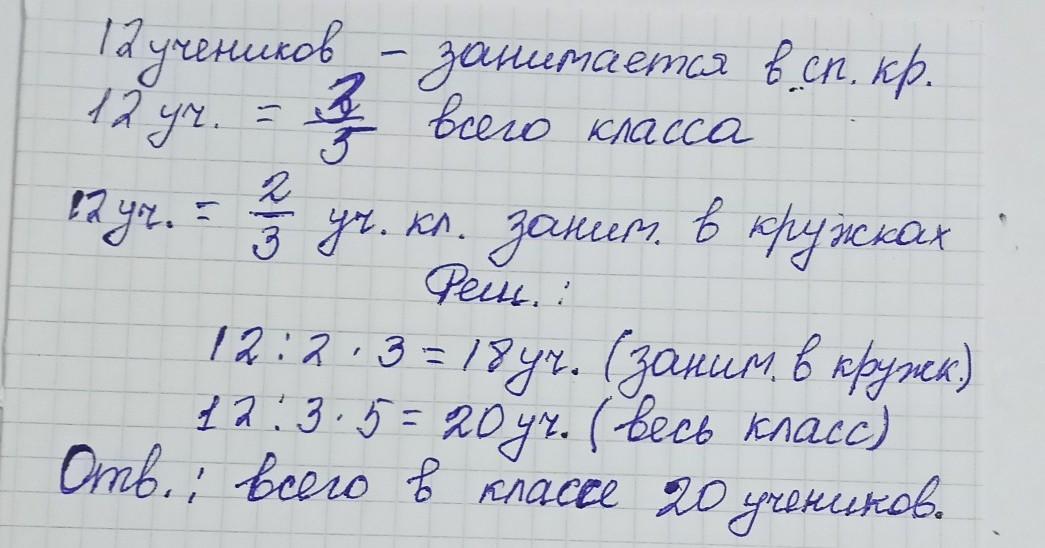 12 учеников – занимается в сп. кр.
12 уч. = 3/5 всего класса
12 уч. = 2/3 уч. кл. заним. в кружках
Реш. :
12 : 2 · 3 = 18 уч. (заним. в кружк.)
12 : 3 · 5 = 20 уч. (весь класс)
Отв. : всего в классе 20 учеников.